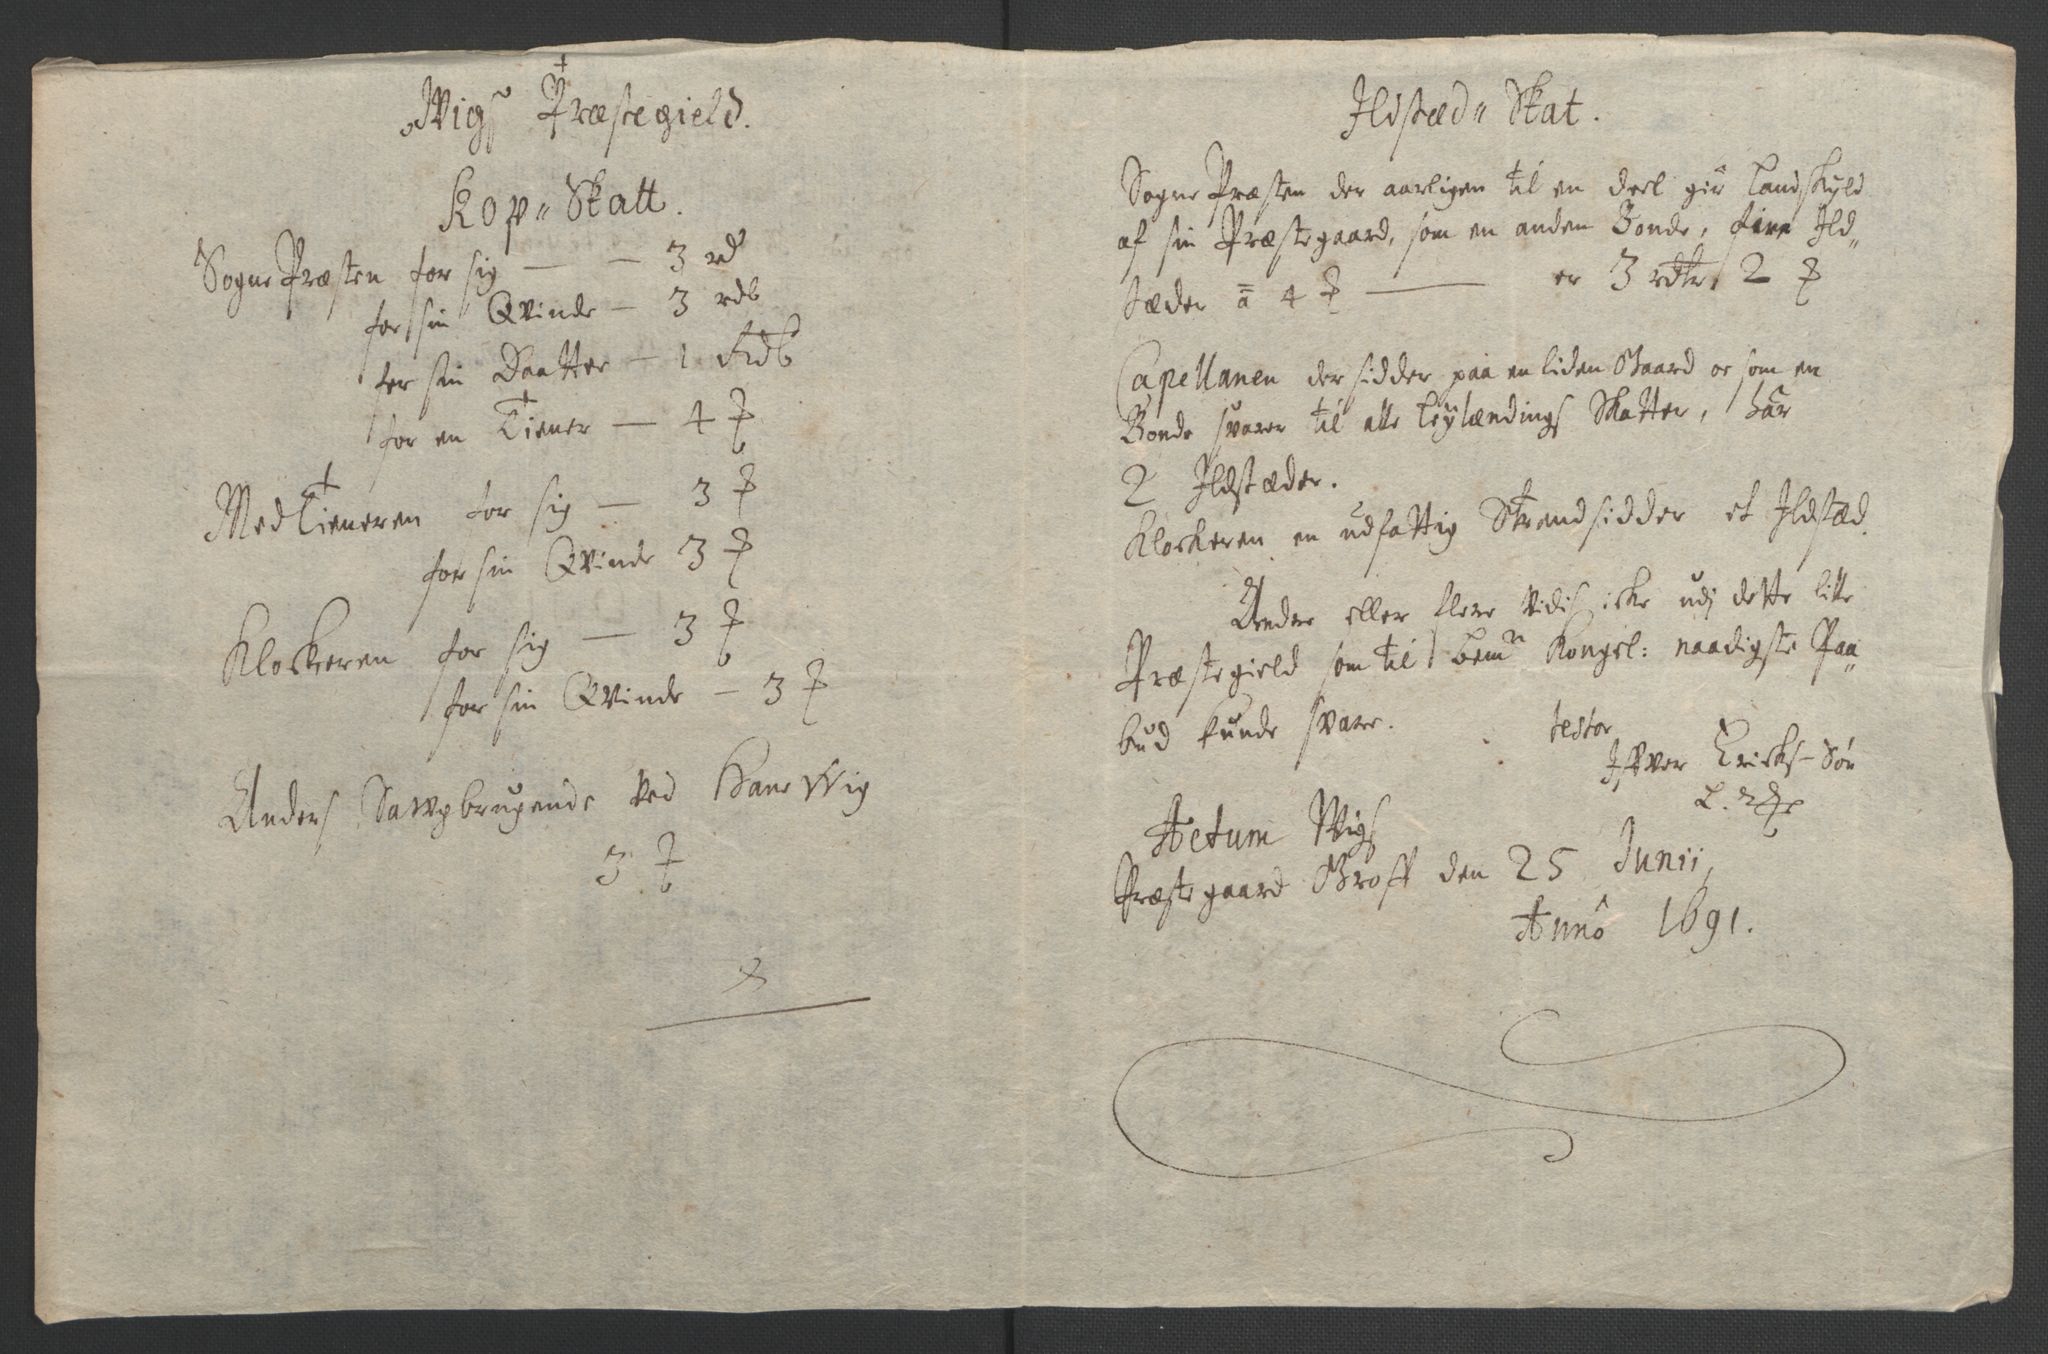 Wigs Præstegield.
Kop- Skatt.
Sogne Præsten for sig — — 3 rd
for sin Qvinde — 3 rdl
for sin Daatter — 1 rdl
for en Tiener — 4 ₰
MedTieneren for sig — 3 ₰
for sin Qvinde 3 ₰
Klockeren for sig — 3 ₰
for sin Qvinde — 3 ₰
Anders Sawgbrugende ved Hane Wig
3 ₰
Ildstæd- Skat.
Sogne Præsten der aarligen til en deel gir Landskyld
af sin Præstegaard, som en anden Bonde, fire Ild-
stæder à 4 ₰ — er 3 rdlr 2 ₰
Capellanen der sidder paa en liden Gaard oc som en
Bonde svarer til alle Leylændings Skatter, har
2 Ildstæder.
Klockeren en udfattig Strandsidder et Ildstæd.
Andre eller flere vidis icke udj dette lille
Præstegield som til bemte Kongel: naadigste Paa-
bud kunde svare. testor
Iffver Ericks-Søn
Actum Wigs
Præstegaard Groff den 25 Junii,
Anno 1691.